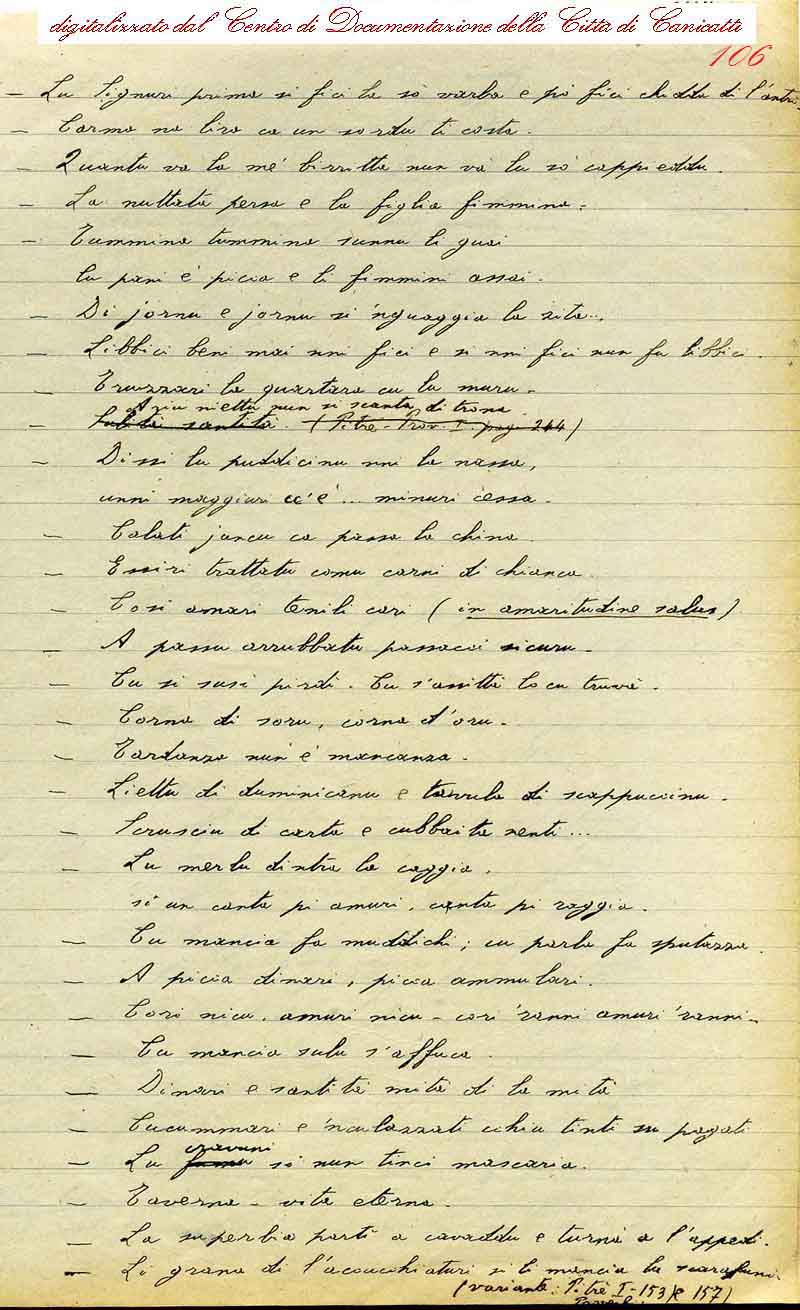 digitalizzato dal Centro di Documentazione della Città di Canicattì
106
- Lu Signuri prima si fici la sò varba e pò fici chidda di l'antri.
- Carma na lira ca un sordu ti costa.
- Quantu va la mé birritta nun và lu sò cappieddu.
- La nuttata persa e la figlia fimmina.
- Tummina tummina sunnu li guai
lu pani è picca e li fimmini assai.
- Di jornu e jornu si 'nguaggia la zita...
- Libbici beni mai nni fici e si nni fici nun fu libbici.
- Truzzari la quartara cu lu muru.
Aria netta nun si scanta di trona.
- Subitu santità. (Pitrè - Prov. I pag. 264)
- Dissi lu puddicinu nni la nassa,
unni maggiuri cc'è... minuri cessa.
- Calati juncu ca passa la china.
- Essiri trattatu comu carni di chianca.
- Cosi amari tenili cari (in amaritudine salus)
- A passu arrubbatu passacci sicuru.
- Cu si susi pirdì. Cu s'assittà locu truvà.
- Corna di soru, corna d'oru.
- Tardanza nun è mancanza.
- Liettu di duminicanu e tavula di scappuccinu.
- Scrusciu di carta e cubbaita nenti...
- Lu merlu dintra la caggia,
si un canta pi amuri, canta pi raggia.
- Cu mancia fa muddichi; cu parla fa sputazza.
- A picca dinari, picca ammulari.
- Cori nicu, amuri nicu - cori 'ranni amuri 'ranni.
- Cu mancia sulu s'affuca.
- Dinari e santità mità di la mità
- Cucummari e 'nculazzati cchiu tinti su pagati
- Lu cravuni si nun tinci mascaria.
- Taverna - vita eterna.
- La superbia partì a cavaddu e turnà a l'appedi.
- Li grana di l'accucchiaturi si li mancia lu scarafuni.
(variante: Pitrè I - 153) e 157)